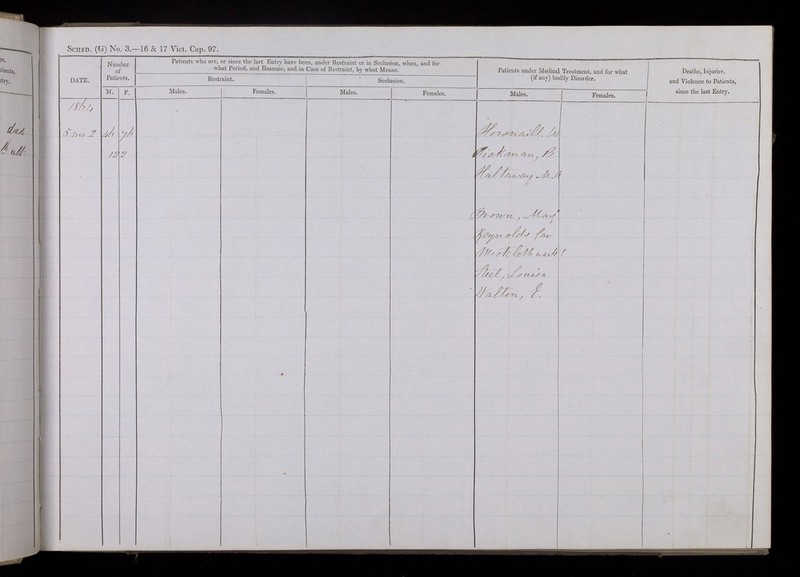 SCHED. (G) No. 3.—16 & 17 Vict. Cap. 97.
DATE.
Number of Patients.
M. F.
Patients who are, or since the last Entry have been, under Restraint or in Seclusion, when, and for
what Period, and Reasons, and in Case of Restraint, by what Means.
Restraint.
Seclusion.
Males. Females. Males. Females.
Patients under Medical Treatment, and for what
(if any) bodily Disorder.
Males. Females.
Deaths, Injuries,
and Violence to Patients,
since the last Entry.
1864
5 mo 2 46 76
122
Hickman, B
Hattaway M.A
Brown, Mary
Reynolds Car
Micklethwaite
Steel, Louisa
Walton, E.